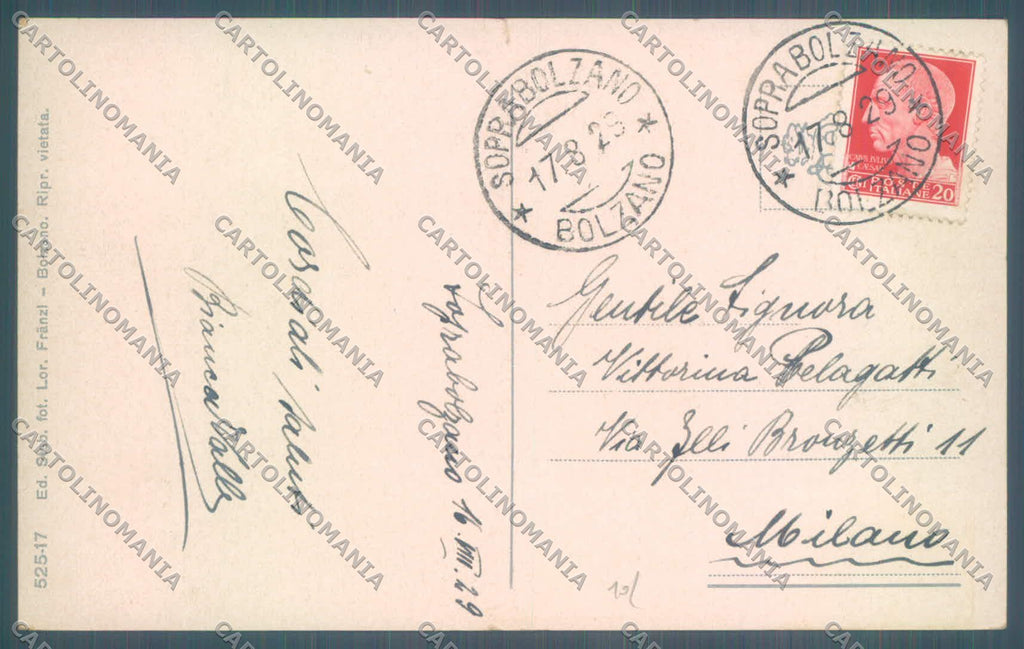 525-17 Ed. fot. Lor. Fränzl – Bolzano. Ripr. vietata.
Cordiali saluti
Bianca
Soprabolzano 16.VIII.29
SOPRABOLZANO
17·8 29
BOLZANO
SOPRABOLZANO
17·8 29
BOLZANO
CAIVS IVLIVS
CAESAR
POSTE
ITALIANE 20
Gentile Signora
Vittorina Pelagatti
Via Flli Bronzetti 11
Milano
CARTOLINOMANIA